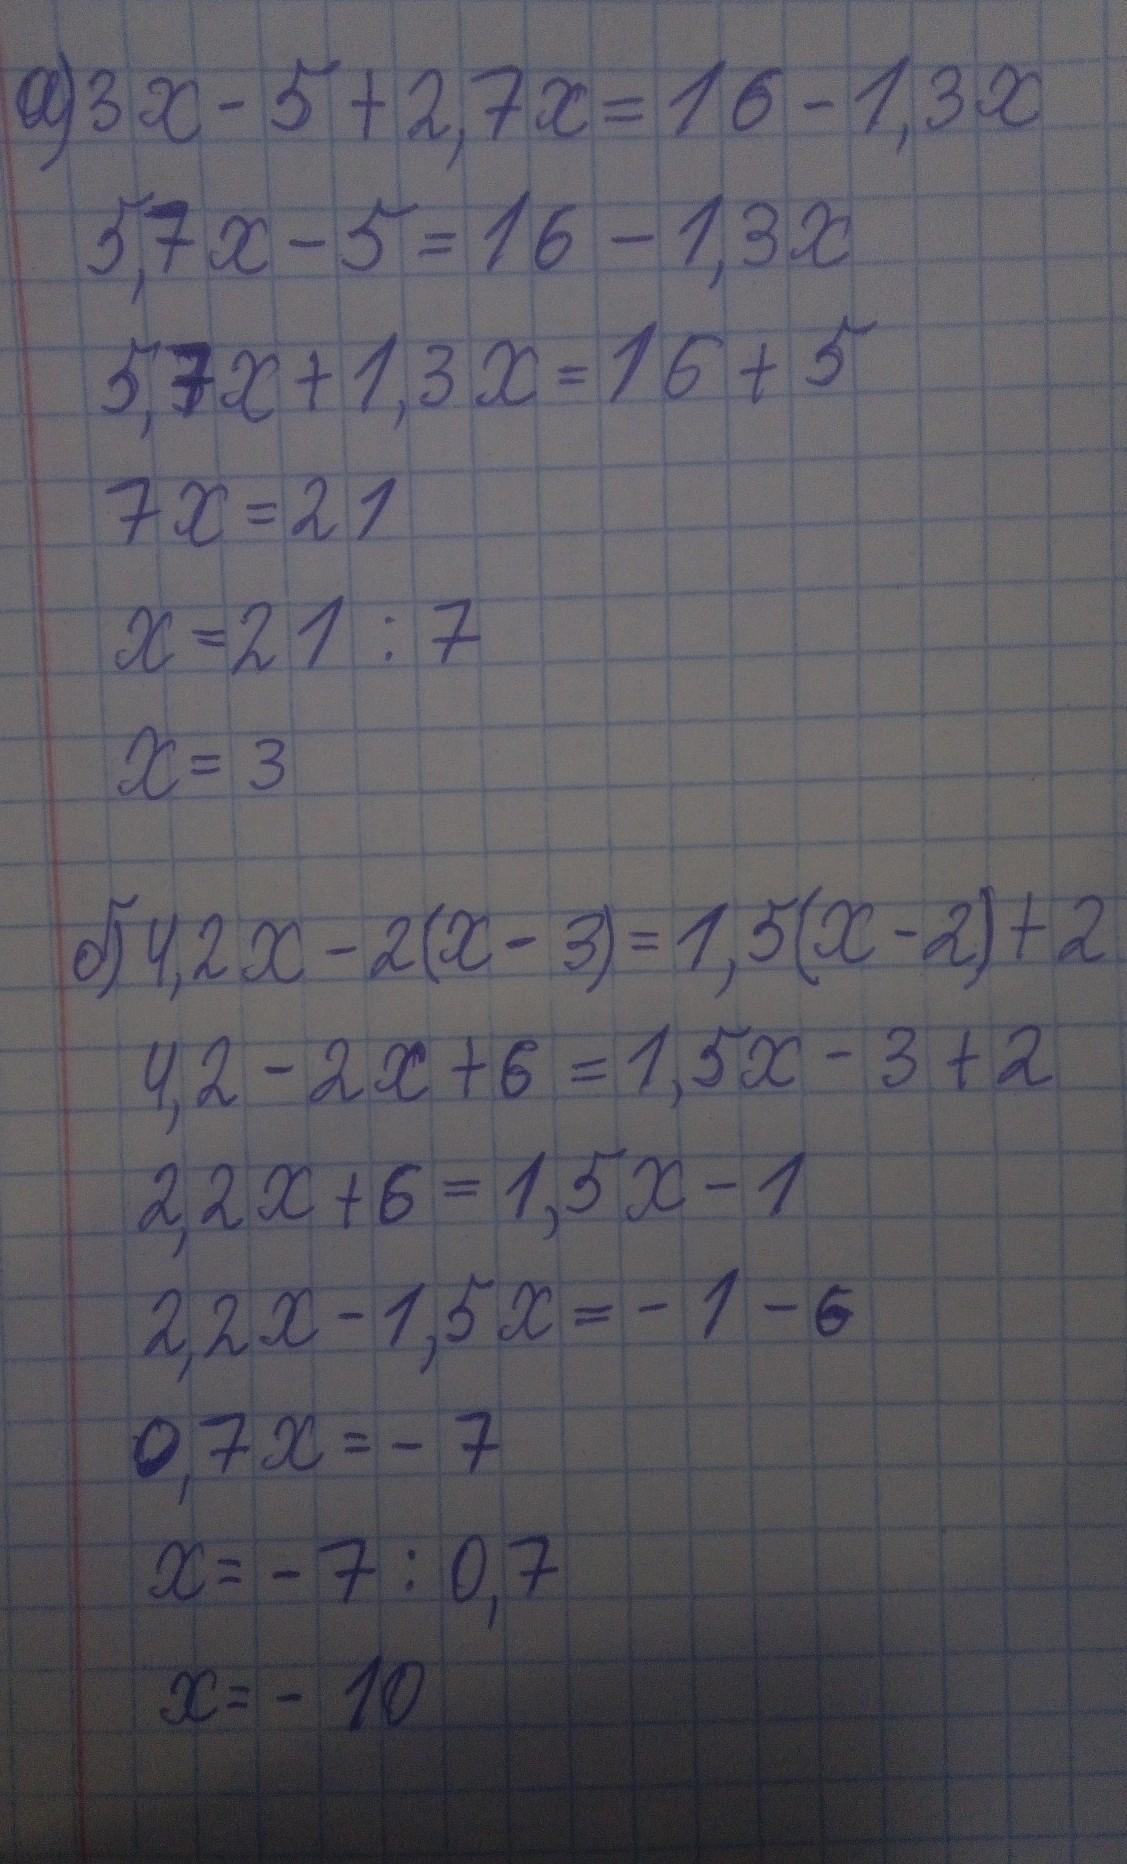 а) 3x - 5 + 2,7x = 16 - 1,3x
5,7x - 5 = 16 - 1,3x
5,7x + 1,3x = 16 + 5
7x = 21
x = 21 : 7
x = 3
б) 4,2x - 2(x - 3) = 1,5(x - 2) + 2
4,2 - 2x + 6 = 1,5x - 3 + 2
2,2x + 6 = 1,5x - 1
2,2x - 1,5x = - 1 - 6
0,7x = - 7
x = - 7 : 0,7
x = - 10